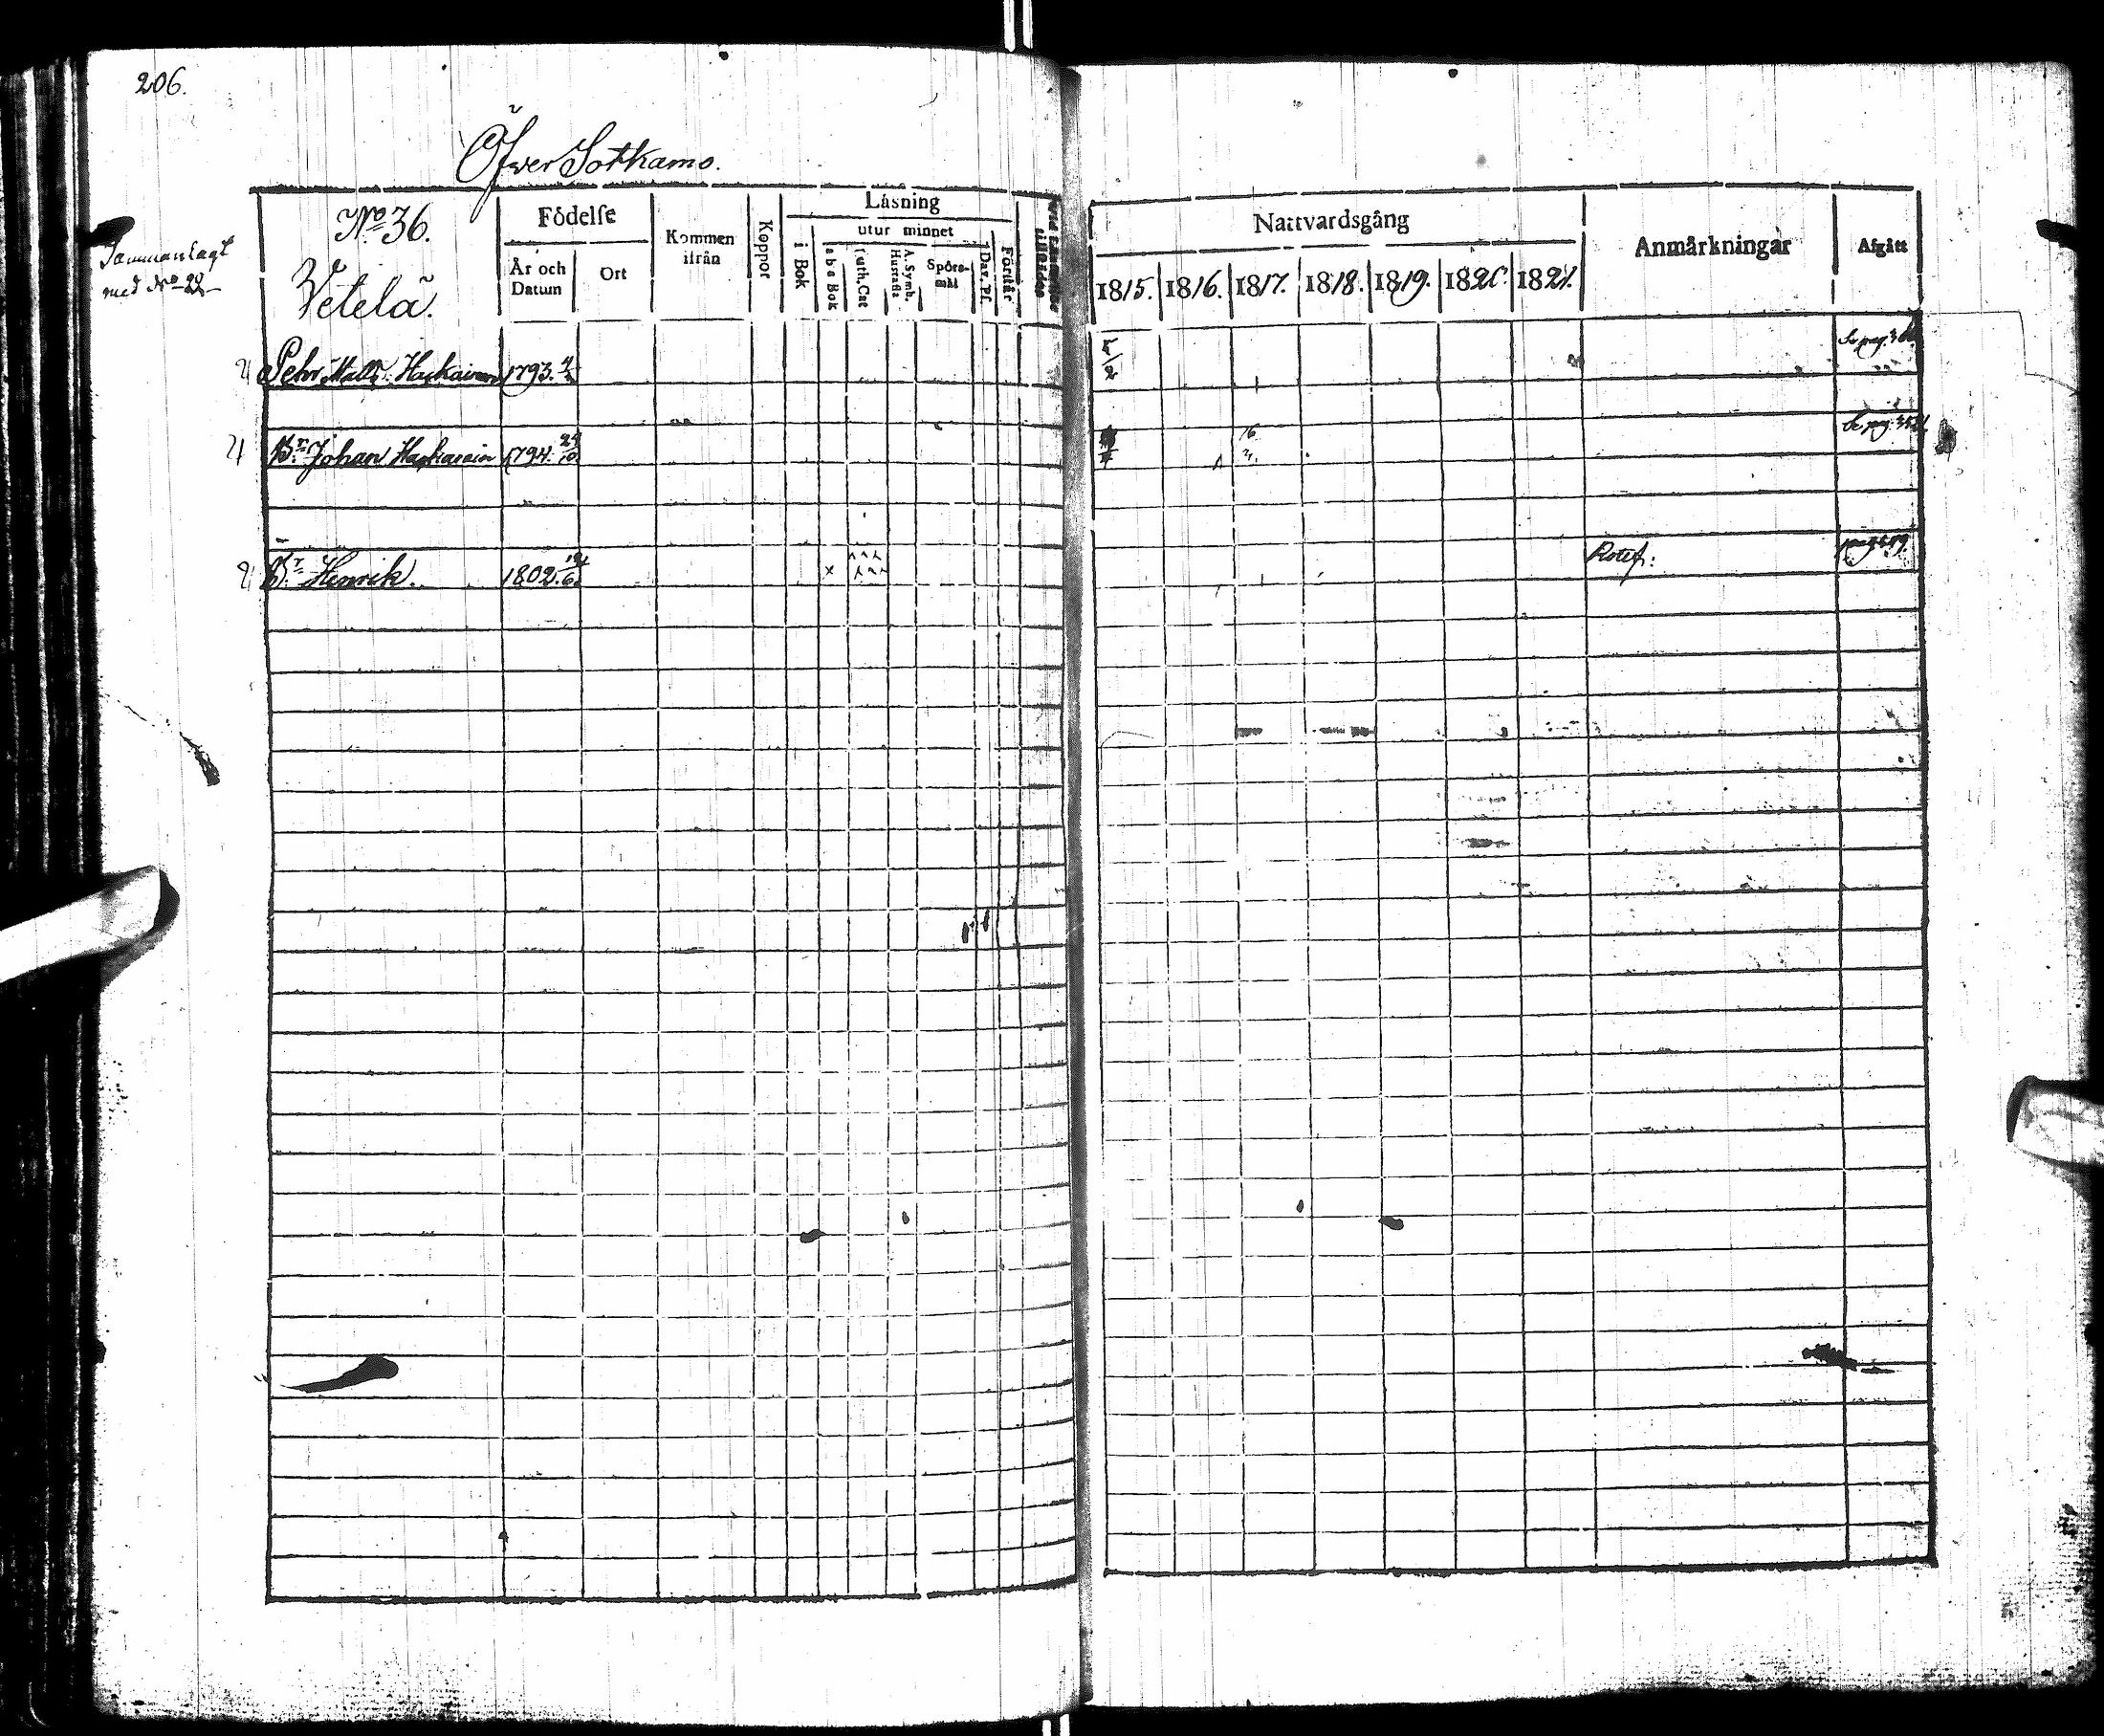 206.
Öfver Sotkamo.
Sammanlagt
med No 20
No 36.
Vetelä.
Födelse
År och Datum
Ort
Kommen ifrån
Koppor
Läsning
i Bok
utur minnet
a b c Bok
Luth. Cat
A. Symb. Hustafla
Spörsmål
Dav. Ps.
Förstår
Nattvardsgång
1815. 1816. 1817. 1818. 1819. 1820. 1821.
Anmärkningar
Afgått
Pehr Matts. Haykainen 1793. 5/2
Br. Johan Haykainen 1794. 24/10. 16
Br. Henrik. 1802. x Rotef: